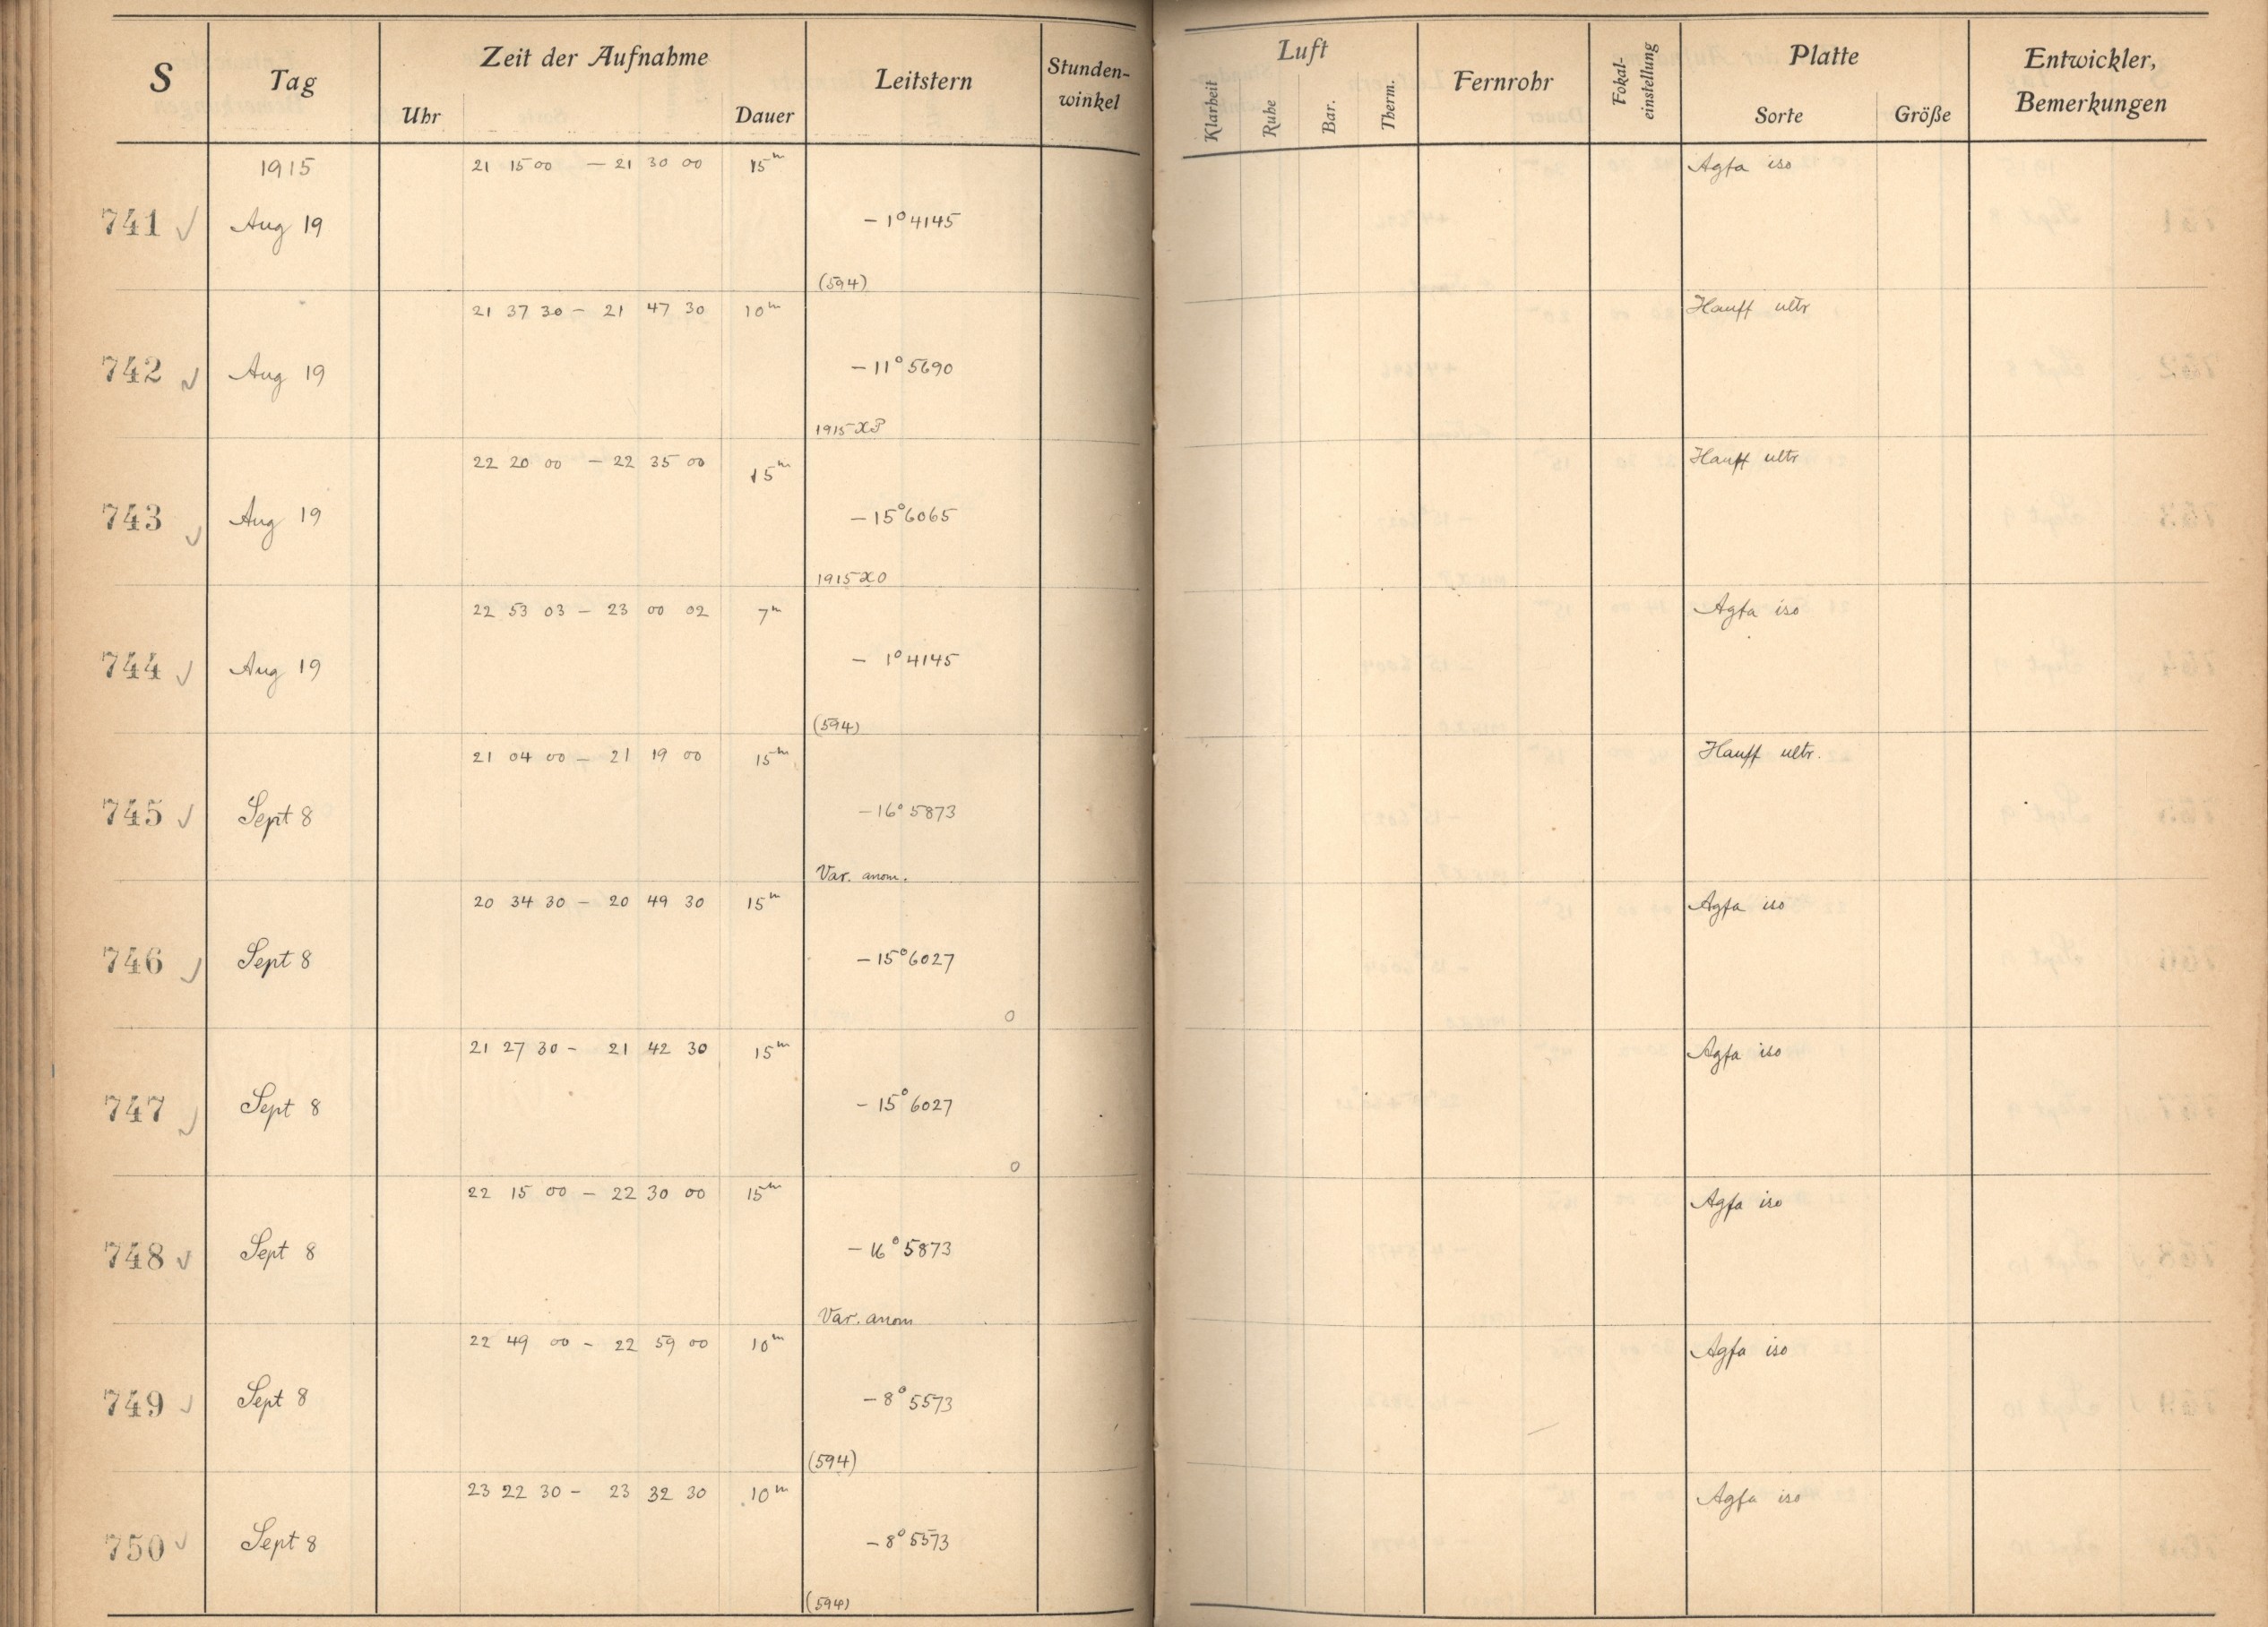 S Tag Zeit der Aufnahme Leitstern Stunden-winkel Luft Fernrohr Fokal-einstellung Platte Entwickler, Bemerkungen
Uhr Dauer Klarheit Ruhe Bar. Therm. Sorte Größe
1915 21 15 00 — 21 30 00 15m Agfa iso
741 √ Aug 19 — 1° 4145
(594)
21 37 30 — 21 47 30 10m Hauff ultr
742 √ Aug 19 — 11° 5690
1915 XP
22 20 00 — 22 35 00 15m Hauff ultr
743 √ Aug 19 — 15° 6065
1915 XO
22 53 03 — 23 00 02 7m Agfa iso
744 √ Aug 19 — 1° 4145
(594)
21 04 00 — 21 19 00 15m Hauff ultr.
745 √ Sept 8 — 16° 5873
Var. anom.
20 34 30 — 20 49 30 15m Agfa iso
746 √ Sept 8 — 15° 6027
0
21 27 30 — 21 42 30 15m Agfa iso
747 √ Sept 8 — 15° 6027
0
22 15 00 — 22 30 00 15m Agfa iso
748 √ Sept 8 — 16° 5873
Var. anom
22 49 00 — 22 59 00 10m Agfa iso
749 √ Sept 8 — 8° 5573
(594)
23 22 30 — 23 32 30 10m Agfa iso
750 √ Sept 8 — 8° 5573
(594)